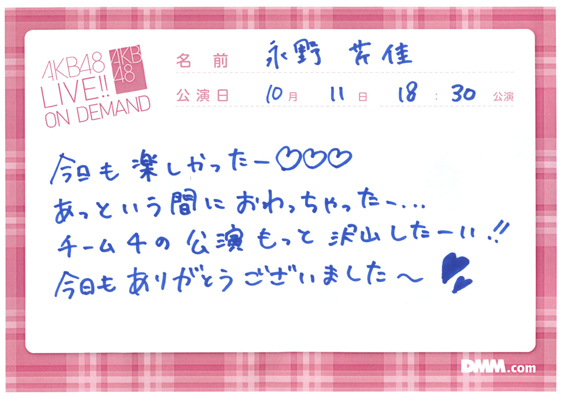 AKB48
LIVE!!
ON DEMAND
AKB
48
名前 永野 芹佳
公演日 10月 11日 18:30公演
今日も楽しかったー♡♡♡
あっという間におわっちゃったー...
チーム4の公演もっと沢山したーい!!
今日もありがとうございました〜
DMM.com